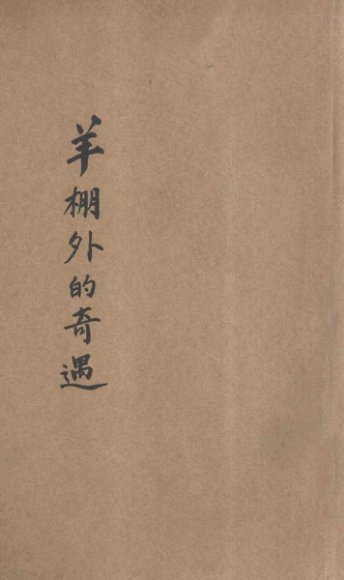 羊棚外的奇遇